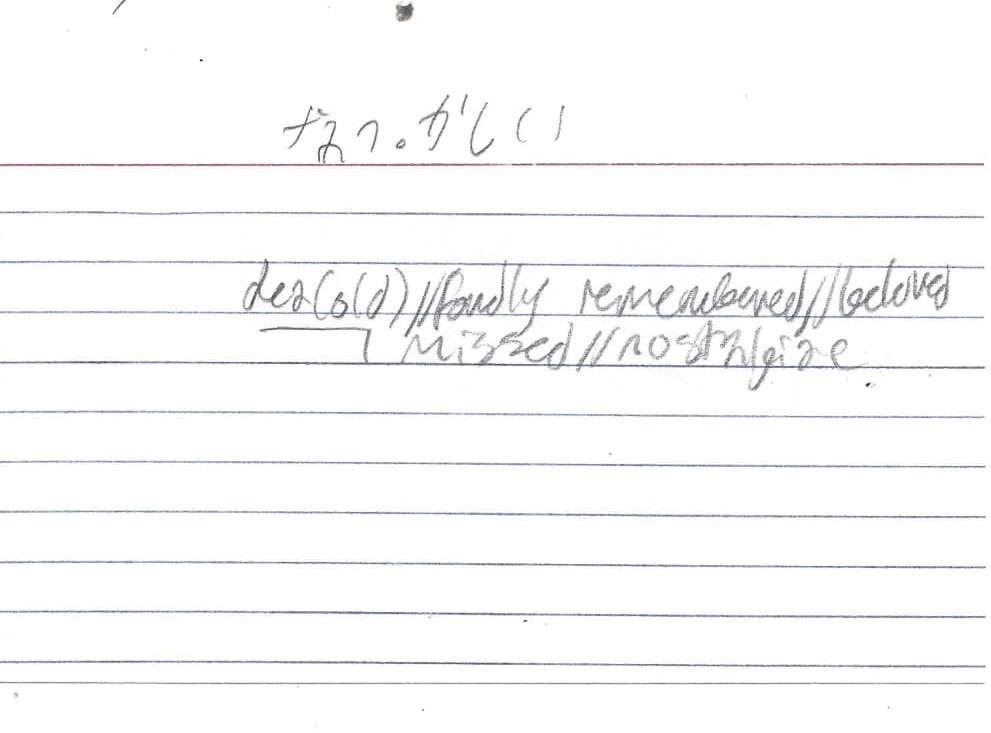 なつかしい
dear(old)//fondly remembered//beloved
missed//nostalgize